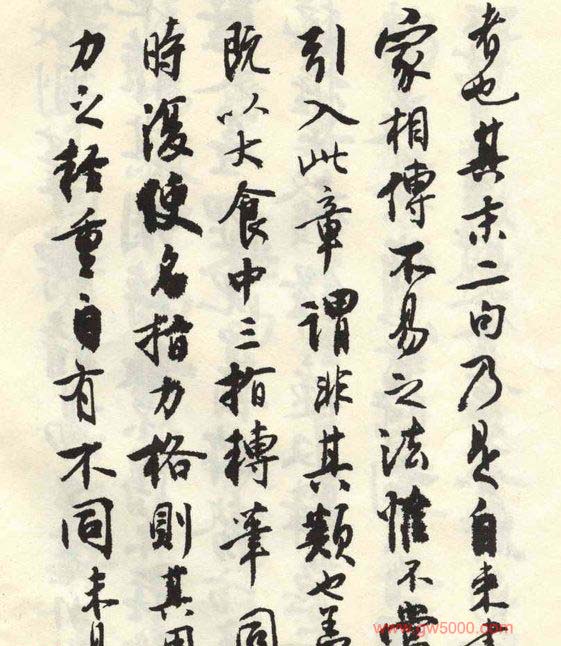 者也其末二句乃是自来書
家相傳不易之法惟不當
引入此章謂非其類也盖
既以大食中三指摶筆同
時復使名指力格則其用
力之輕重自有不同未見
www.gw5000.com